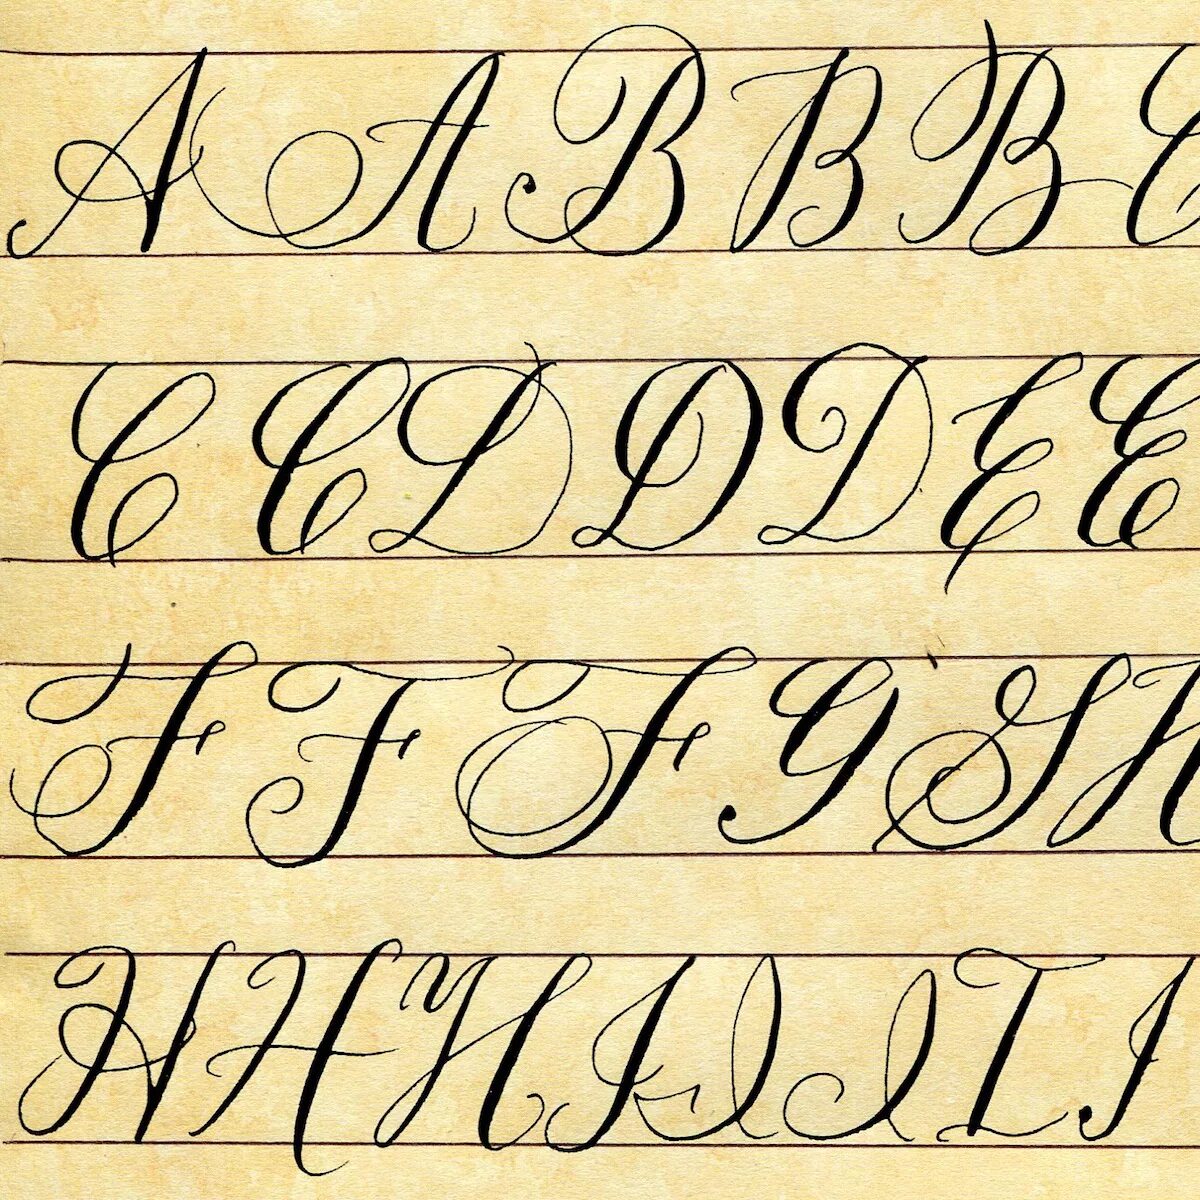 A A B B B C
C C D D D E E
F F F G G H
H H H I I I I I